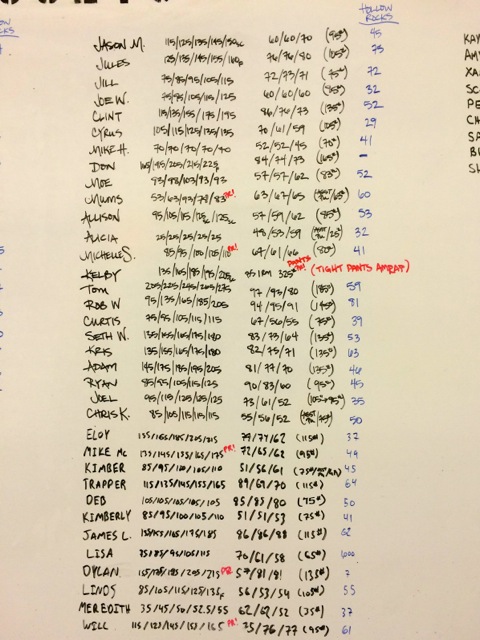 HOLLOW ROCKS
JASON M. 115/125/135/145/150 60/60/70 (95#) 45
JULES 125/135/145/155/160 76/76/80 (105#) 73
JILL 75/85/95/105/115 72/73/71 (75#) 72
JOE W. 75/95/105/115/125 60/60/60 (95#) 32
CLINT 115/135/155/175/195 86/70/73 (135#) 52
CYRUS 105/115/125/135/135 70/61/59 (105#) 29
MIKE H. 70/70/70/70/70 52/52/45 (70#) 41
DON 165/185/205/215/225 84/74/73 (165#) -
MOE 83/93/103/93/93 57/57/62 (83#) 52
MUMS 53/63/93/78/83 PR! 63/67/65 60
ALLISON 95/105/115/125/125 57/59/62 (85#) 53
ALICIA 25/25/25/25/25 48/53/59 32
MICHELLE S. 85/95/105/110/115 PR! 67/61/66 (80#) 41
KELBY 135/165/185/195/205 BS 1RM 325# PANTS PR! (TIGHT PANTS AMRAP)
TOM 205/225/245/265/275 97/95/80 (185#) 59
ROB W 95/135/165/185/205 94/95/91 (145#) 81
CURTIS 75/95/105/115/115 67/56/55 (75#) 39
SETH W. 135/155/165/175/180 83/73/64 (135#) 53
KRIS 135/155/165/175/180 82/75/71 (135#) 63
ADAM 145/175/185/195/205 81/77/70 (135#) 46
RYAN 85/95/105/115/125 90/83/60 (95#) 45
JOEL 95/115/125/125/125 73/61/52 35
CHRIS K. 85/105/115/115/115 55/56/52 50
ELOY 135/165/185/205/215 79/77/62 (115#) 37
MIKE MC 133/145/155/165/175 PR! 72/65/62 (95#) 49
KIMBER 85/95/100/105/110 51/56/61 45
TRAPPER 115/135/145/155/165 89/69/70 (115#) 64
DEB 105/105/105/105/105 85/85/80 (75#) 50
KIMBERLY 85/95/100/105/110 51/51/53 (75#) 41
JAMES L. 135/155/165/175/185 86/86/88 (115#) 62
LISA 75/85/95/105/115 70/61/58 (65#) 1000
DYLAN 155/175/185/205/215 PR! (135#) ?
LINDS 85/105/115/125/135 56/53/54 (105#) 55
MEREDITH 35/45/50/52.5/55 62/62/52 (35#) 37
WILL 115/125/145/155/165 PR! 75/76/77 (95#) 61